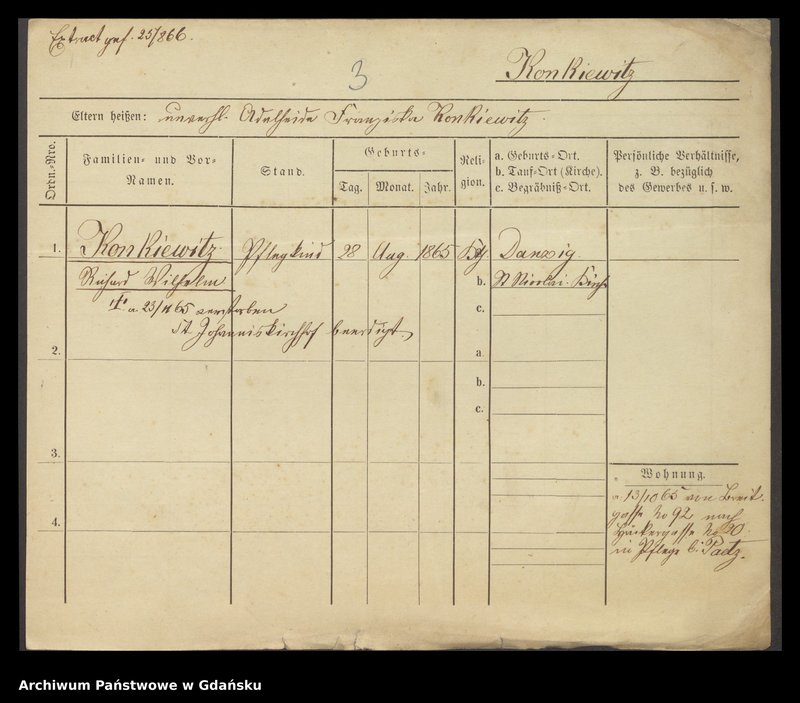 Extract gef. 25/866.
3
Konkiewitz
Eltern heißen: unverhl. Adelheide Franziska Konkiewitz
Ordn.-Nro.
Familien- und Vor-
Namen.
Stand.
Geburts-
Tag.
Monat.
Jahr.
Reli-
gion.
a. Geburts-Ort.
b. Tauf-Ort (Kirche).
c. Begräbniß-Ort.
Persönliche Verhältnisse,
z. B. bezüglich
des Gewerbes u. s. w.
1. Konkiewitz. Pflegkind 28 Aug. 1865 Danzig.
Richard Wilhelm b. St Nicolai. Kirch
a. 23/11 65 verstorben c.
St Johanniskirchhof beerdigt.
2. a.
b.
c.
3.
4.
Wohnung.
a 13/10 65 von Breit-
gasse No 92 nach
Häkergasse No 20
in Pflege b. Paetz.
Archiwum Państwowe w Gdańsku